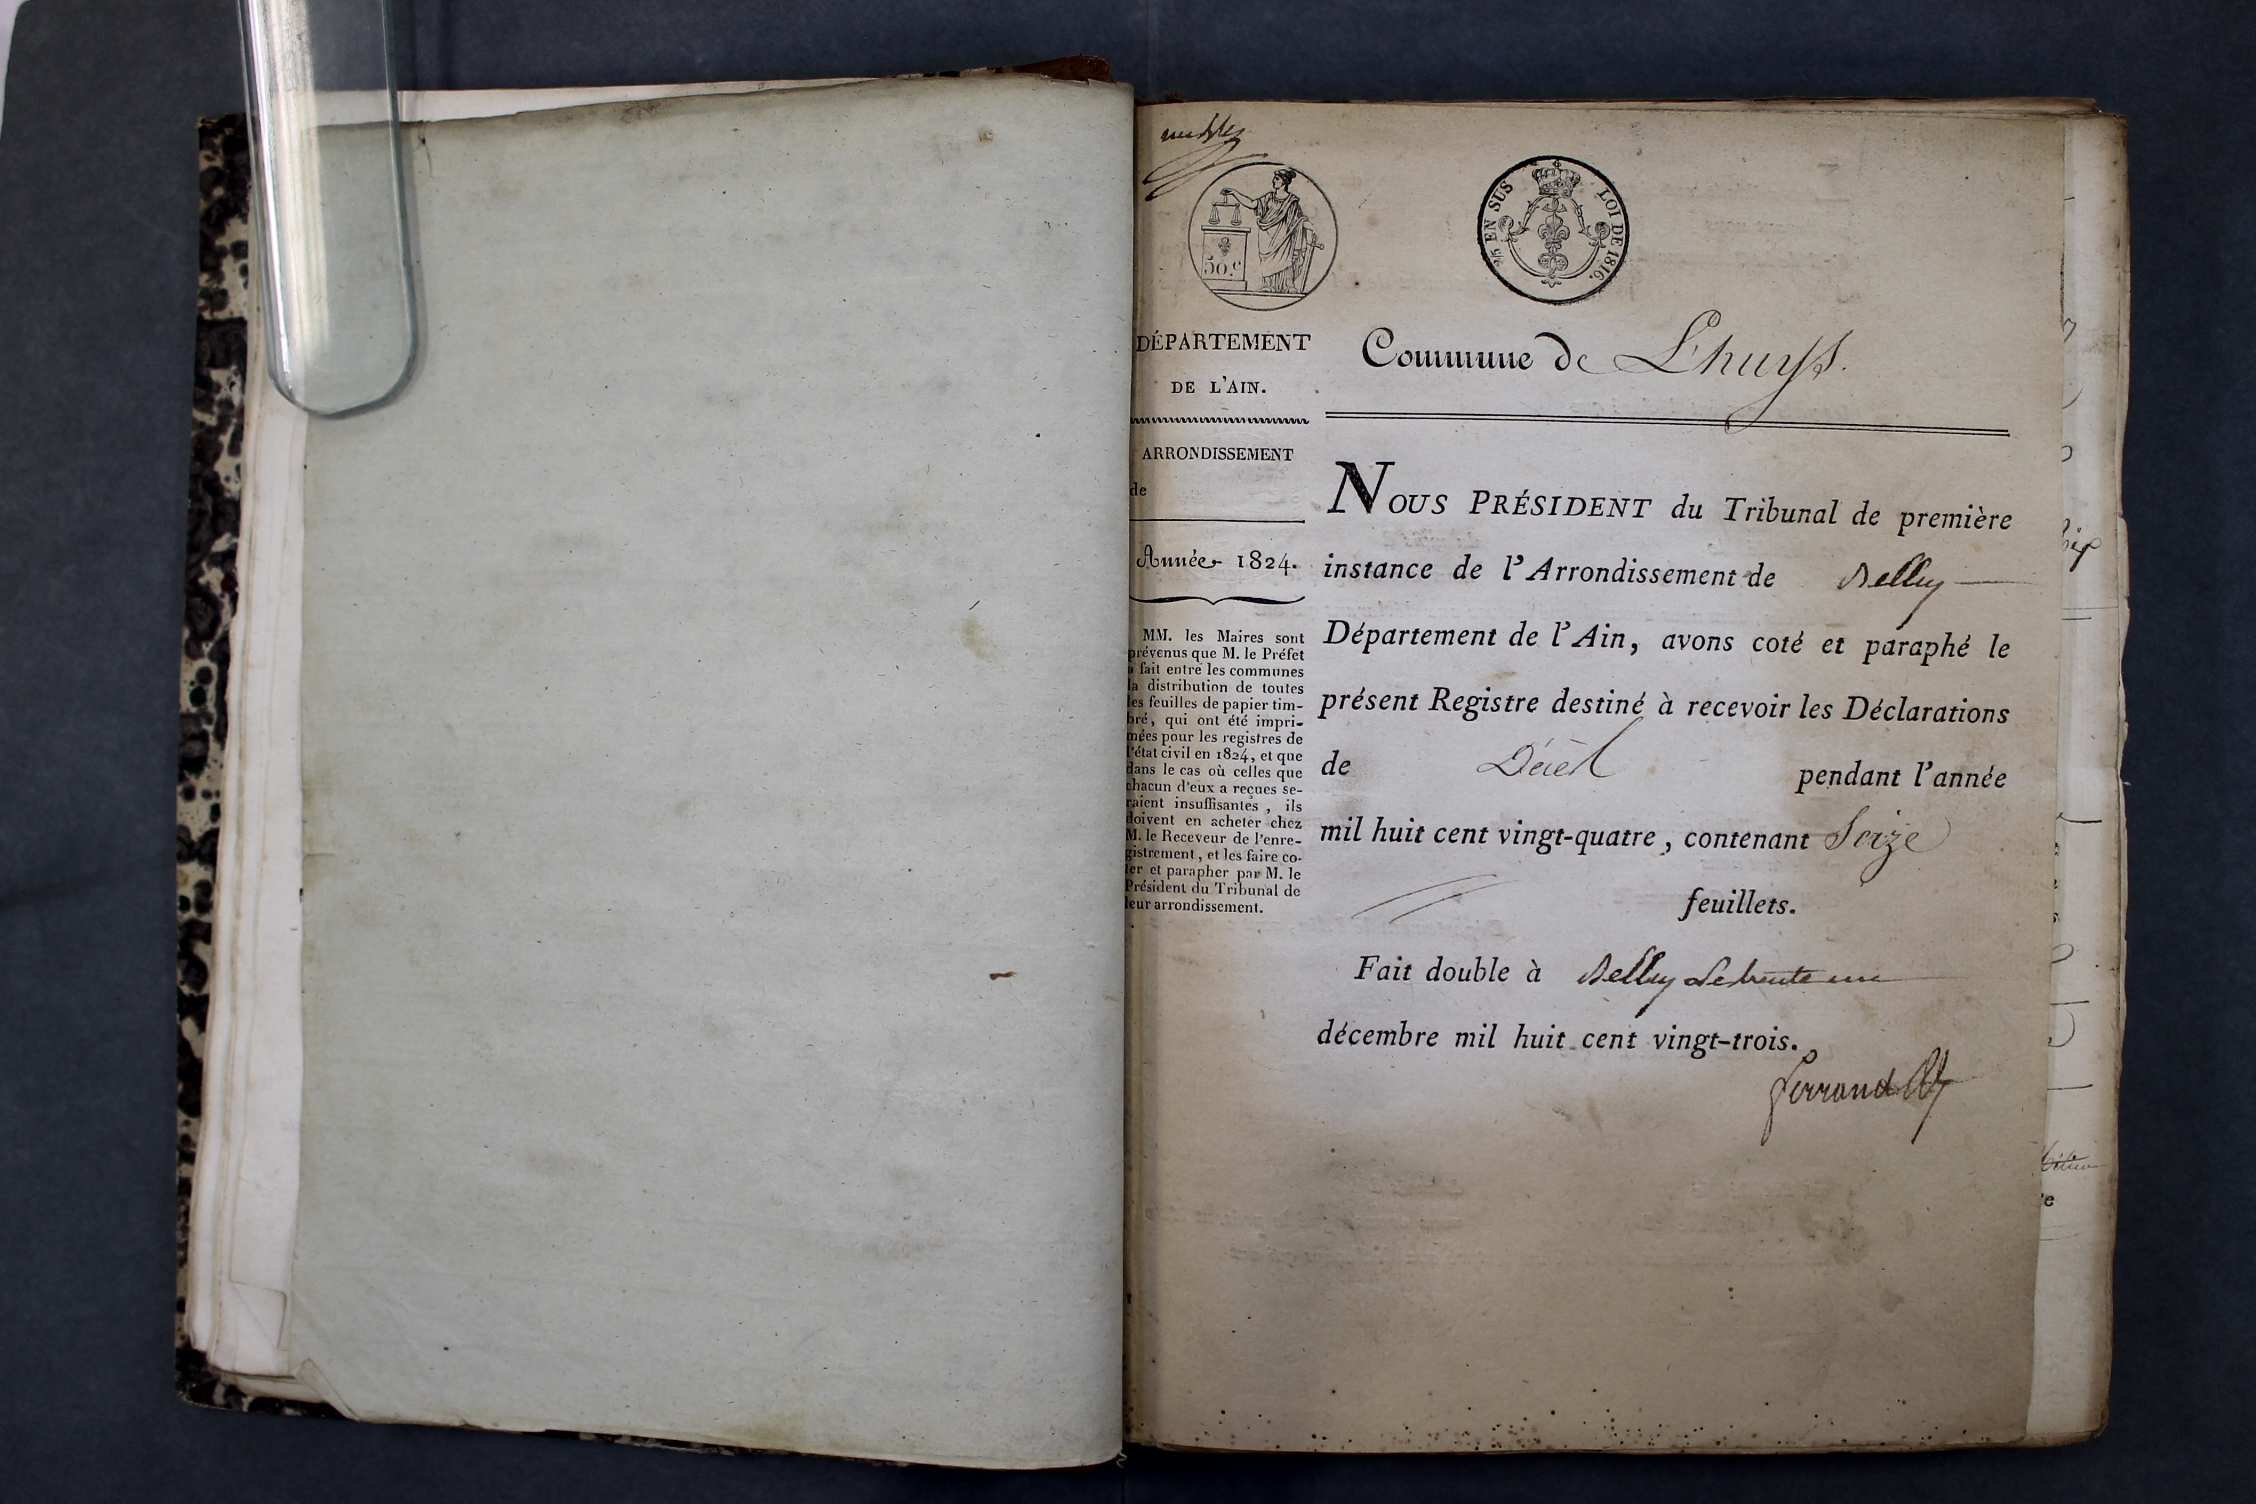 50.c
25 EN SUS LOI DE 1816.
DÉPARTEMENT
DE L'AIN.
ARRONDISSEMENT
de
Année 1824.
MM. les Maires sont
prévenus que M. le Préfet
a fait entre les communes
la distribution de toutes
les feuilles de papier tim-
bré, qui ont été impri-
mées pour les registres de
l'état civil en 1824, et que
dans le cas où celles que
chacun d'eux a reçues se-
raient insuffisantes, ils
doivent en acheter chez
M. le Receveur de l'enre-
gistrement, et les faire co-
ter et parapher par M. le
Président du Tribunal de
leur arrondissement.
Commune de Lhuys.
NOUS PRÉSIDENT du Tribunal de première
instance de l'Arrondissement de Belley
Département de l'Ain, avons coté et paraphé le
présent Registre destiné à recevoir les Déclarations
de Décès pendant l'année
mil huit cent vingt-quatre, contenant Seize
feuillets.
Fait double à Belley le trente un
décembre mil huit cent vingt-trois.
Ferrand